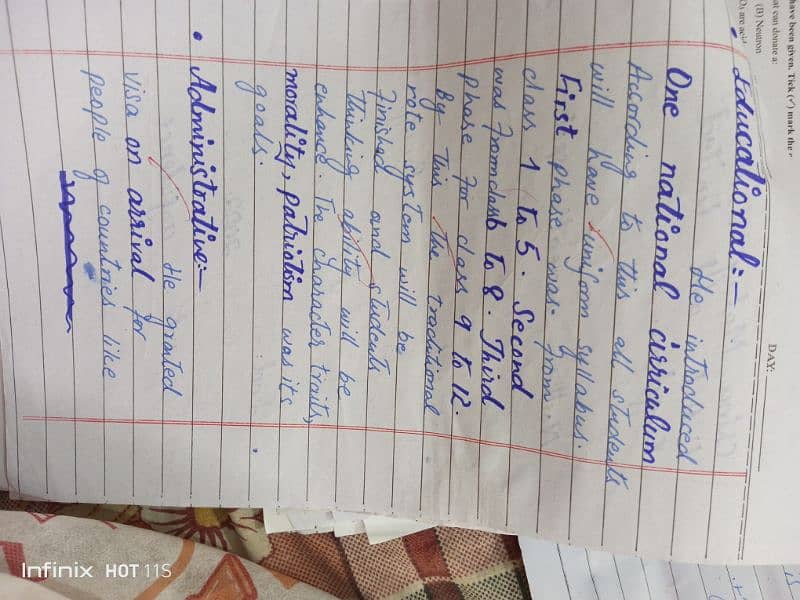 have been given. Tick (✓) mark the
at can donate a:
(B) Neutron
DAY:
Educational:-
He introduced
One national cirriculum
According to this all students
will have uniform syllabus.
First phase was. from
class 1 to 5. Second
was from class 6 to 8. Third
phase for class 9 to 12.
By this the traditional
rote system will be
finished and students
thinking ability will be
enhance. The character traits,
morality, patriotism was its
goals.
• Administrative:-
He granted
visa on arrival for
people of countries like
Infinix HOT 11S